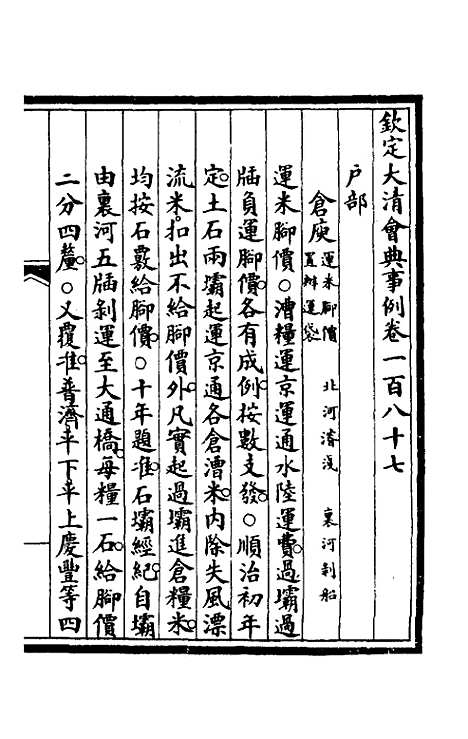 欽定大清會典事例卷一百八十七
戶部
倉庾運米腳價 置辦運袋 北河濬淺 裏河剝船
運米腳價○漕糧運京運通水陸運費過壩過
牐負運腳價各有成例按數支發○順治初年
定土石兩壩起運京通各倉漕米內除失風漂
流米扣出不給腳價外凡實起過壩進倉糧米
均按石數給腳價○十年題准石壩經紀自壩
由裏河五牐剝運至大通橋每糧一石給腳價
二分四釐○又覆准普濟平下平上慶豐等四